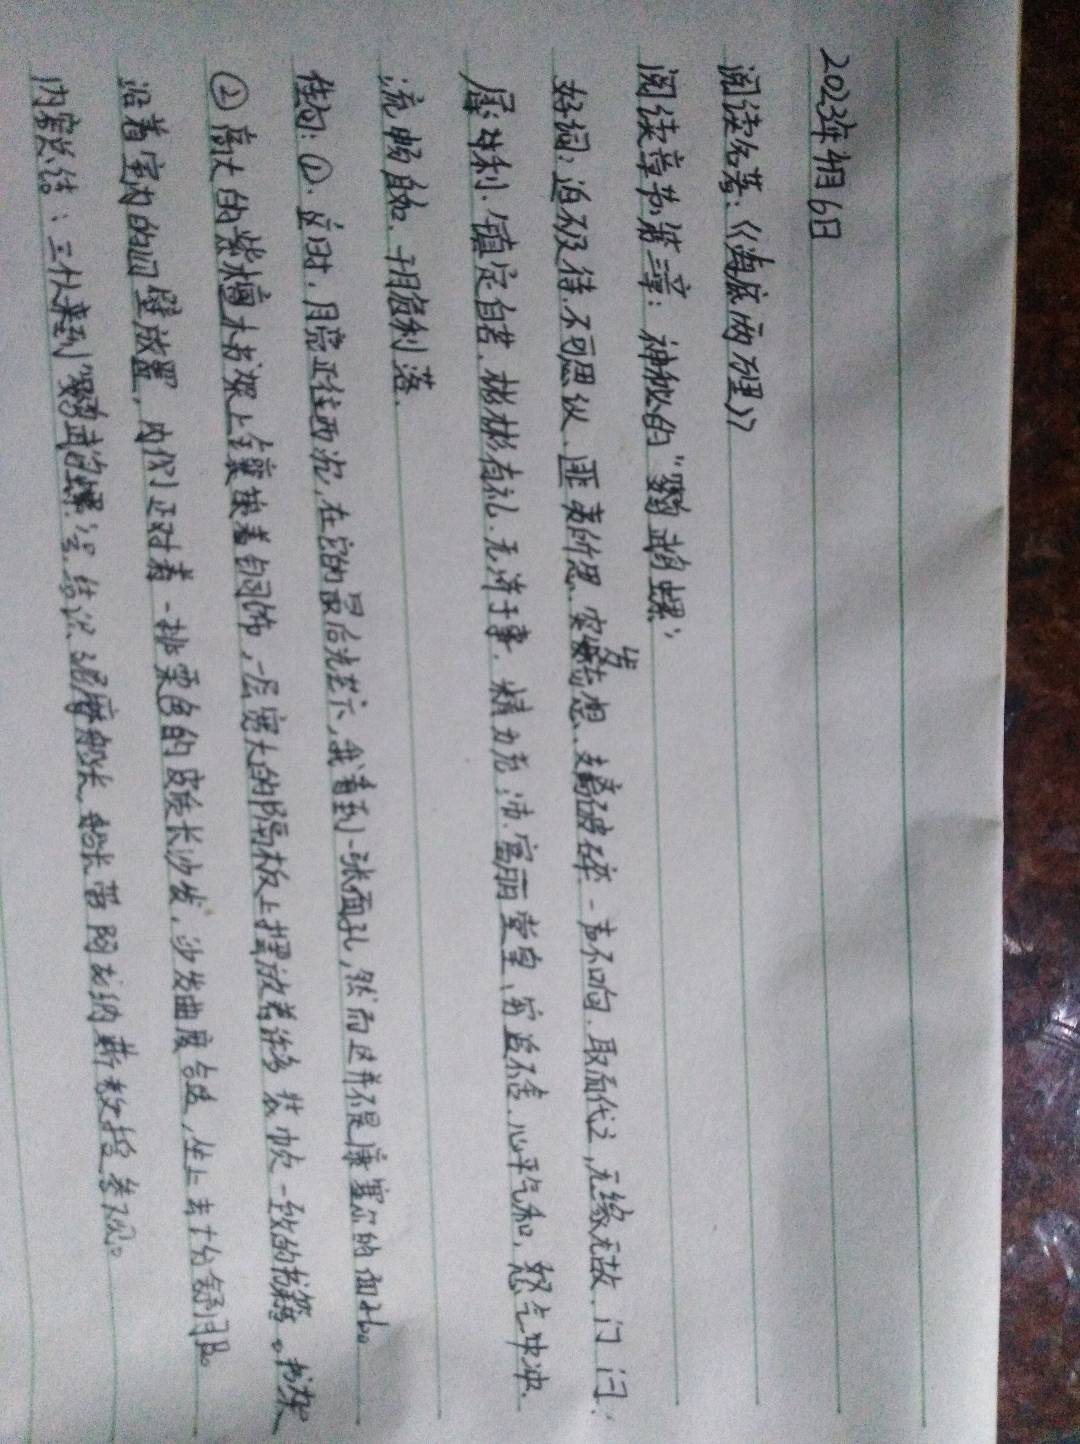 2023年1月6日
阅读名著:《海底两万里》
阅读章节第三章: 神秘的"鹦鹉螺"
好词:迫不及待.不可思议、匪夷所思.突发奇想、支离破碎-声不响.取而代之,无缘无故.门闩.
犀利.镇定自若.彬彬有礼.无济于事.精力充沛.富丽堂皇、心平气和,怒气冲冲.
流畅自如.干脆利落.
佳句:①、这时,月亮正往西沉,在它的最后光芒下,我看到一张面孔,然而这并不是康塞尔的面孔。
②高大的紫檀木书架上镶嵌着铜饰,一层宽大的隔板上摆放着许多装帧一致的书籍。书架
沿着室内的四壁放置,正对着一排栗色的皮质长沙发,沙发曲度合适,坐上去十分舒服。
内容总结:三人来到"鹦鹉螺"号.结识了尼摩船长.船长带阿龙纳斯教授参观。